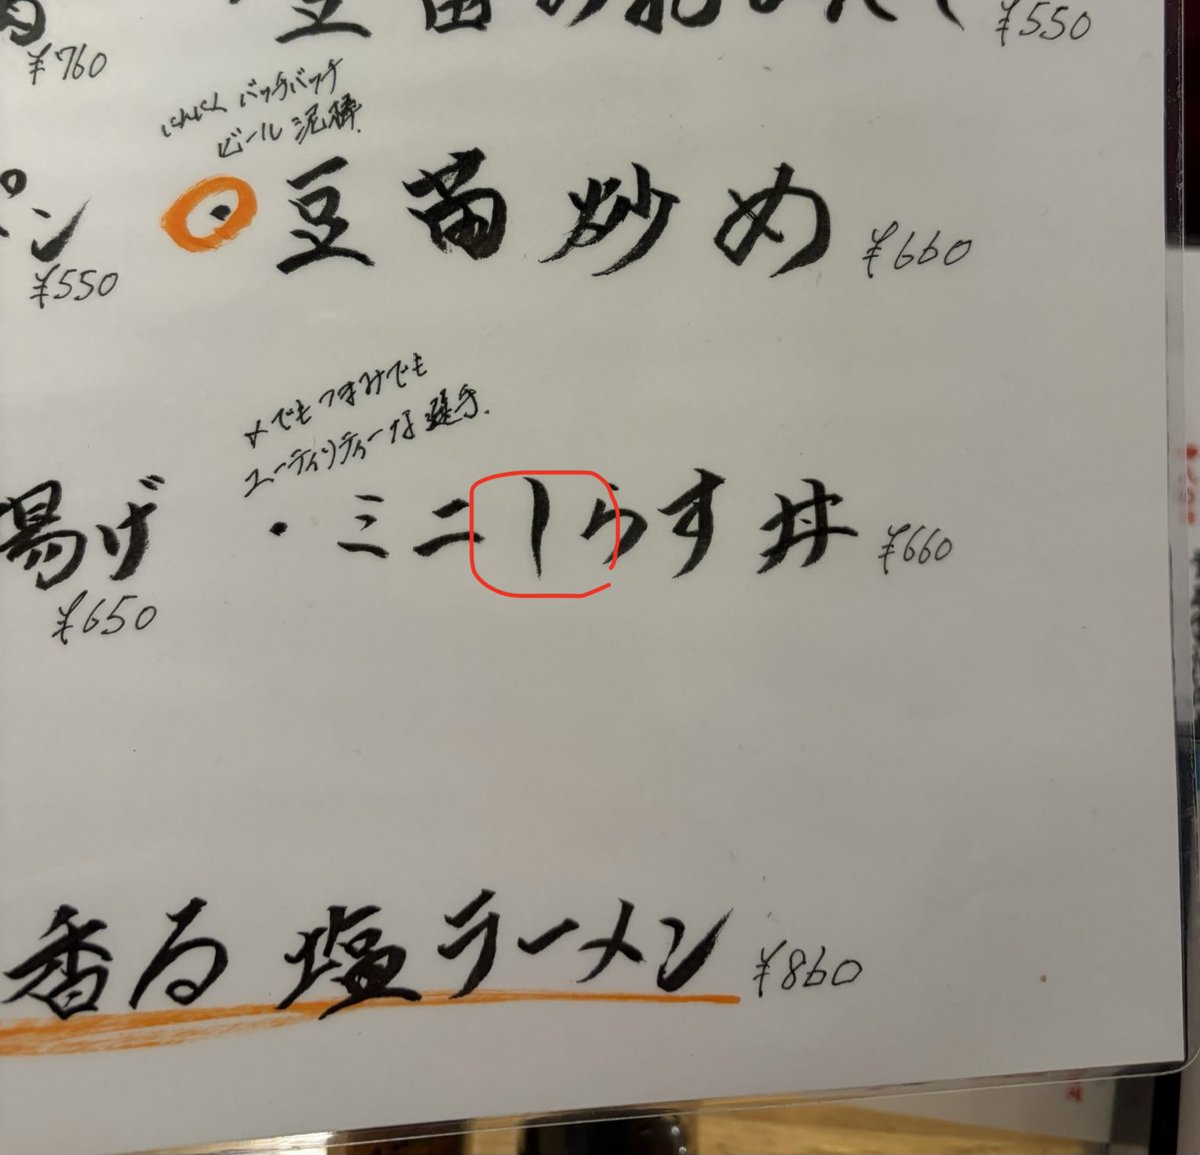 ¥760
¥550
にんにくバッチバッチ
ビール泥棒
・豆苗炒め ¥660
ン
¥550
〆でもつまみでも
ユーティリティーな選手.
・ミニしらす丼 ¥660
揚げ
¥650
香る塩ラーメン ¥860